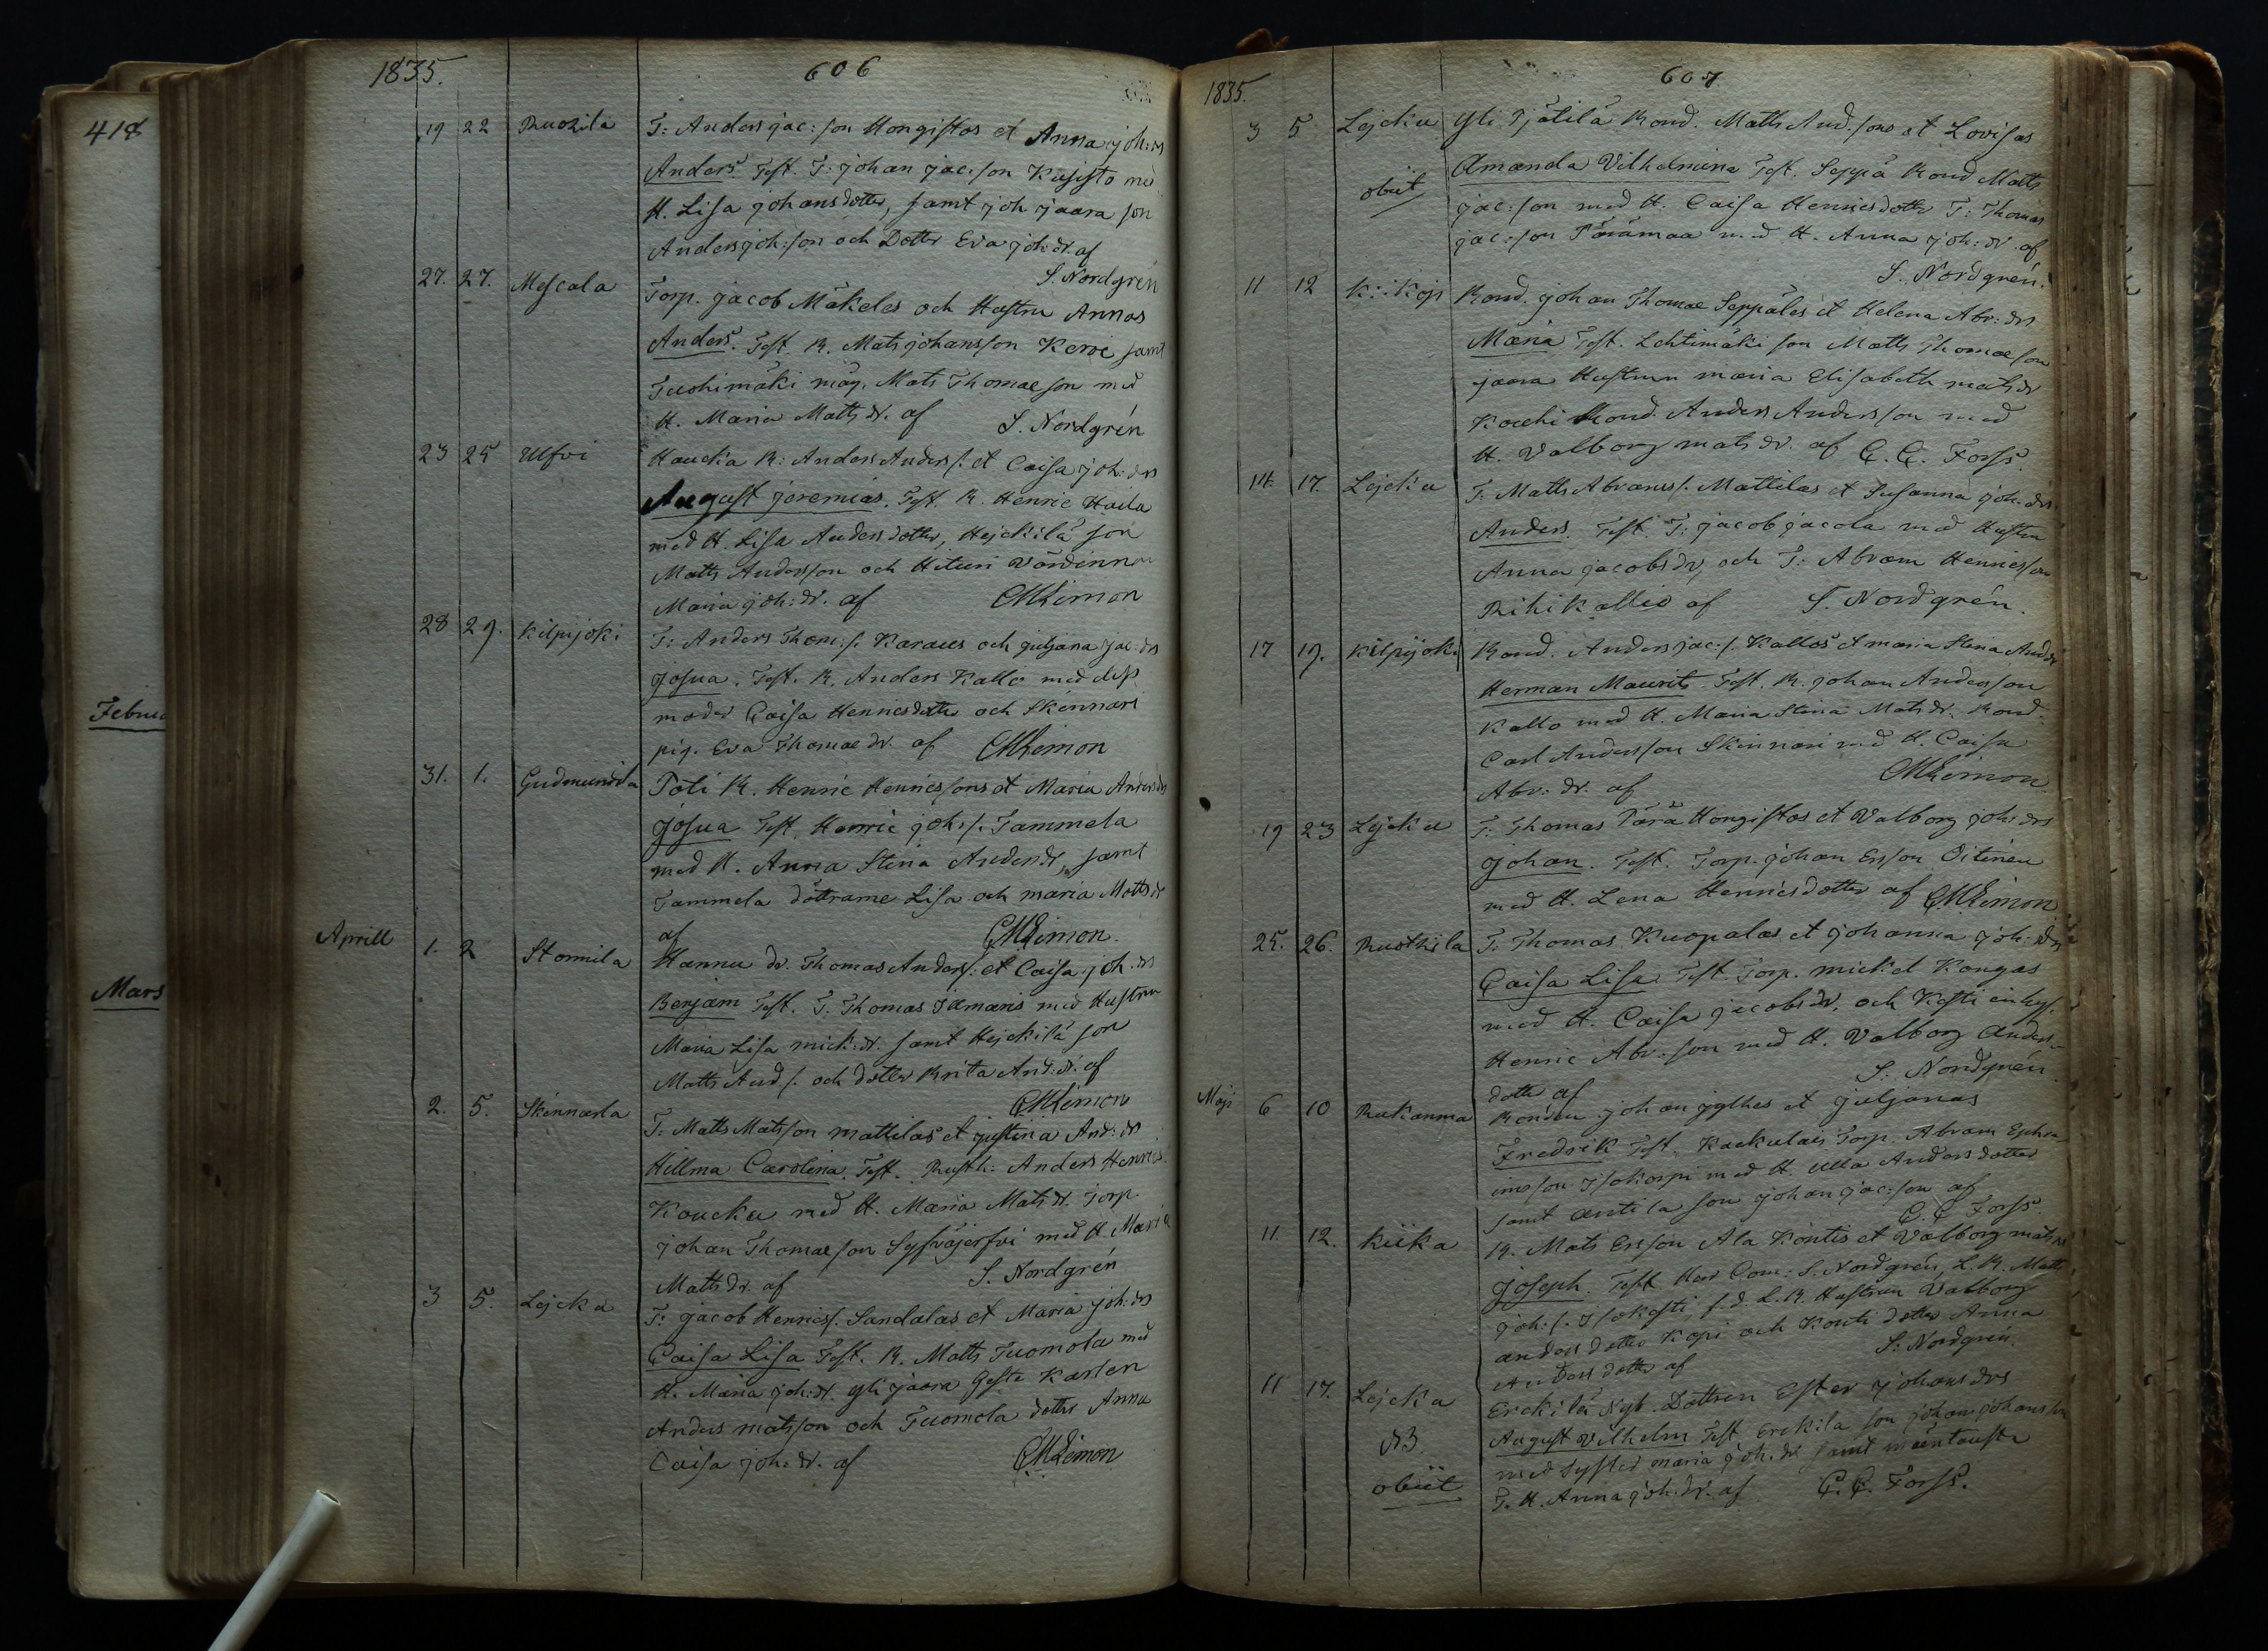 418
Februa
Mars
1835. 606
19 22 Ruozila T: Anders jac: son Hongistos et Anna joh: drs
Anders. Test. T: johan jac: son Kujisto med
H. Lisa johansdotter, samt joh jaara son
Anders joh: son och Dotter Eva joh: dr. af
S. Nordgrén
27. 27. Mescala Torp. jacob Mäkeles och Hustru Annas
Anders. Test. R. Mats johansson Kervi samt
Tuohimäki måg. Mats Thomae son med
H. Maria Matts dr. af S. Nordgrén
23 25 Ulfvi Haucka R: Anders Anders s. et Caisa joh: drs
August jeremias. Test. R. Henric Haila
med H. Lisa Andersdotter, Hejckilä son
Matts Andersson och Hituri Värdinnan
Maria joh: dr. af CMLimon
28 29. Kilpijoki T: Anders Thom: s. Karaus och juljana jac: drs
Josua. Test. R. Anders Kallo med dess
moder Caisa Henricsdotter och Skinnari
pig. Eva Thomae dr. af CMLimon
31. 1. Gudmundila Poti R. Henric Henricssons et Maria Anders drs
Josua Test. Henric joh: s. Tammela
med H. Anna Stina Anders dr, samt
Tammela döttrarne Lisa och maria Matts dr
af CMLimon.
Aprill 1. 2 Stormila Hannu dr. Thomas Anders s: et Caisa joh: drs
Benjam Test. T: Thomas jämaris med Hustru
Maria Lisa mick: dr. samt Hejckilä son
Matts And s. och dotter Brita And: dr. af
CMLimon
2. 5. Skinnarla T: Matts Matsson mattilas et justina And: drs
Hillma Carolina. Test. Rusth: Anders Henrics.
Koucku med H. Maria Mats dr. Torp.
johan Thomae son Syfväjerfvi med H. Maria
Matts dr. af S. Nordgrén
3 5. Lejcku T: jacob Henrics s. Sandalas et Maria joh: drs
Caisa Lisa Test. R. Matts Tuomola med
H. Maria joh: dr. yli jaara Gosse Karlen
Anders matsson och Tuomola dotter Anna
Caisa joh: dr. af CMLimon
1835. 607
3 5 Lejcku Yli Pjätilä Bond. Matts And. sons et Lovisas
obiit Amanda Vilhelmina Test. Seppä Bond Matts
jac: son med H. Caisa Henricsdotter T: Thomas
jac: son Päramaa med H. Anna joh: dr. af
S. Nordgrén.
11 12 Kiikois Bond. johan Thomae Seppäles et Helena Abr: drs
Maria Test. Lehtimäki son Matts Thomae son
jaara Hustrun maria Elisabeth mats dr
Kouhi Bond. Anders Andersson med
H. Valborg mats dr. af C. C. Forss.
14. 17. Lejcku T: Matts Abrams s. Mattilas et Susanna joh: drs.
Anders. Test. T: jacob jacola med Hustru
Anna jacobs dr, och T: Abram Henricsson
Rihikallio af S. Nordgrén.
17 19. Kilpijoki Bond. Anders jac: s. Kallos et maria Stina And: drs
Herman Maurits. Test. R. johan Andersson
Kallo med H. Maria Stina Mats dr. Bond.
Carl Andersson Skinnari med H. Caisa
Abr: dr. af CMLimon
19 23 Lejcku T: Thomas Pärä Hongistos et Valborg joh: drs
johan. Test. Torp. johan Ersson Oitinen
med H. Lena Henricsdotter af CMLimon
25. 26. Ruothila T: Thomas Kuopalas et johanna joh: drs
Caisa Lisa Test. Torp. mickel Kongas
med H. Caisa jacobs dr, och Kesti inhys.
Henric Abr: son med H. Valborg Anders-
dotter af S. Nordgrén
Maji 6 10 Putanma Bonden johan jylhes et juljanas
Fredrik Test. Kaekulais Torp. Abram Ephra-
imsson Isokorpi med H. Ulla Andersdotter
samt antila son johan jac: son af
C. C. Forss.
11. 12. Kiika R. Mats Ersson Ala Kontis et Valborg mats drs
Joseph. Test Herr Com: S. Nordgrén, L. R. Matts
joh: s. Isokesti, f. d. L. R. Hustrun Valborg
andersdotter Kopi och Konti dotter Anna
Andersdotter af S. Nordgrén.
11 17. Lejcku Erckilä Nyb. Dottren Ester johans drs
N3. August Vilhelm Test Erckila son johan johansson
obiit med Syster maria joh: dr samt mäentausta
T. H. Anna joh: dr. af C. C. Forss.